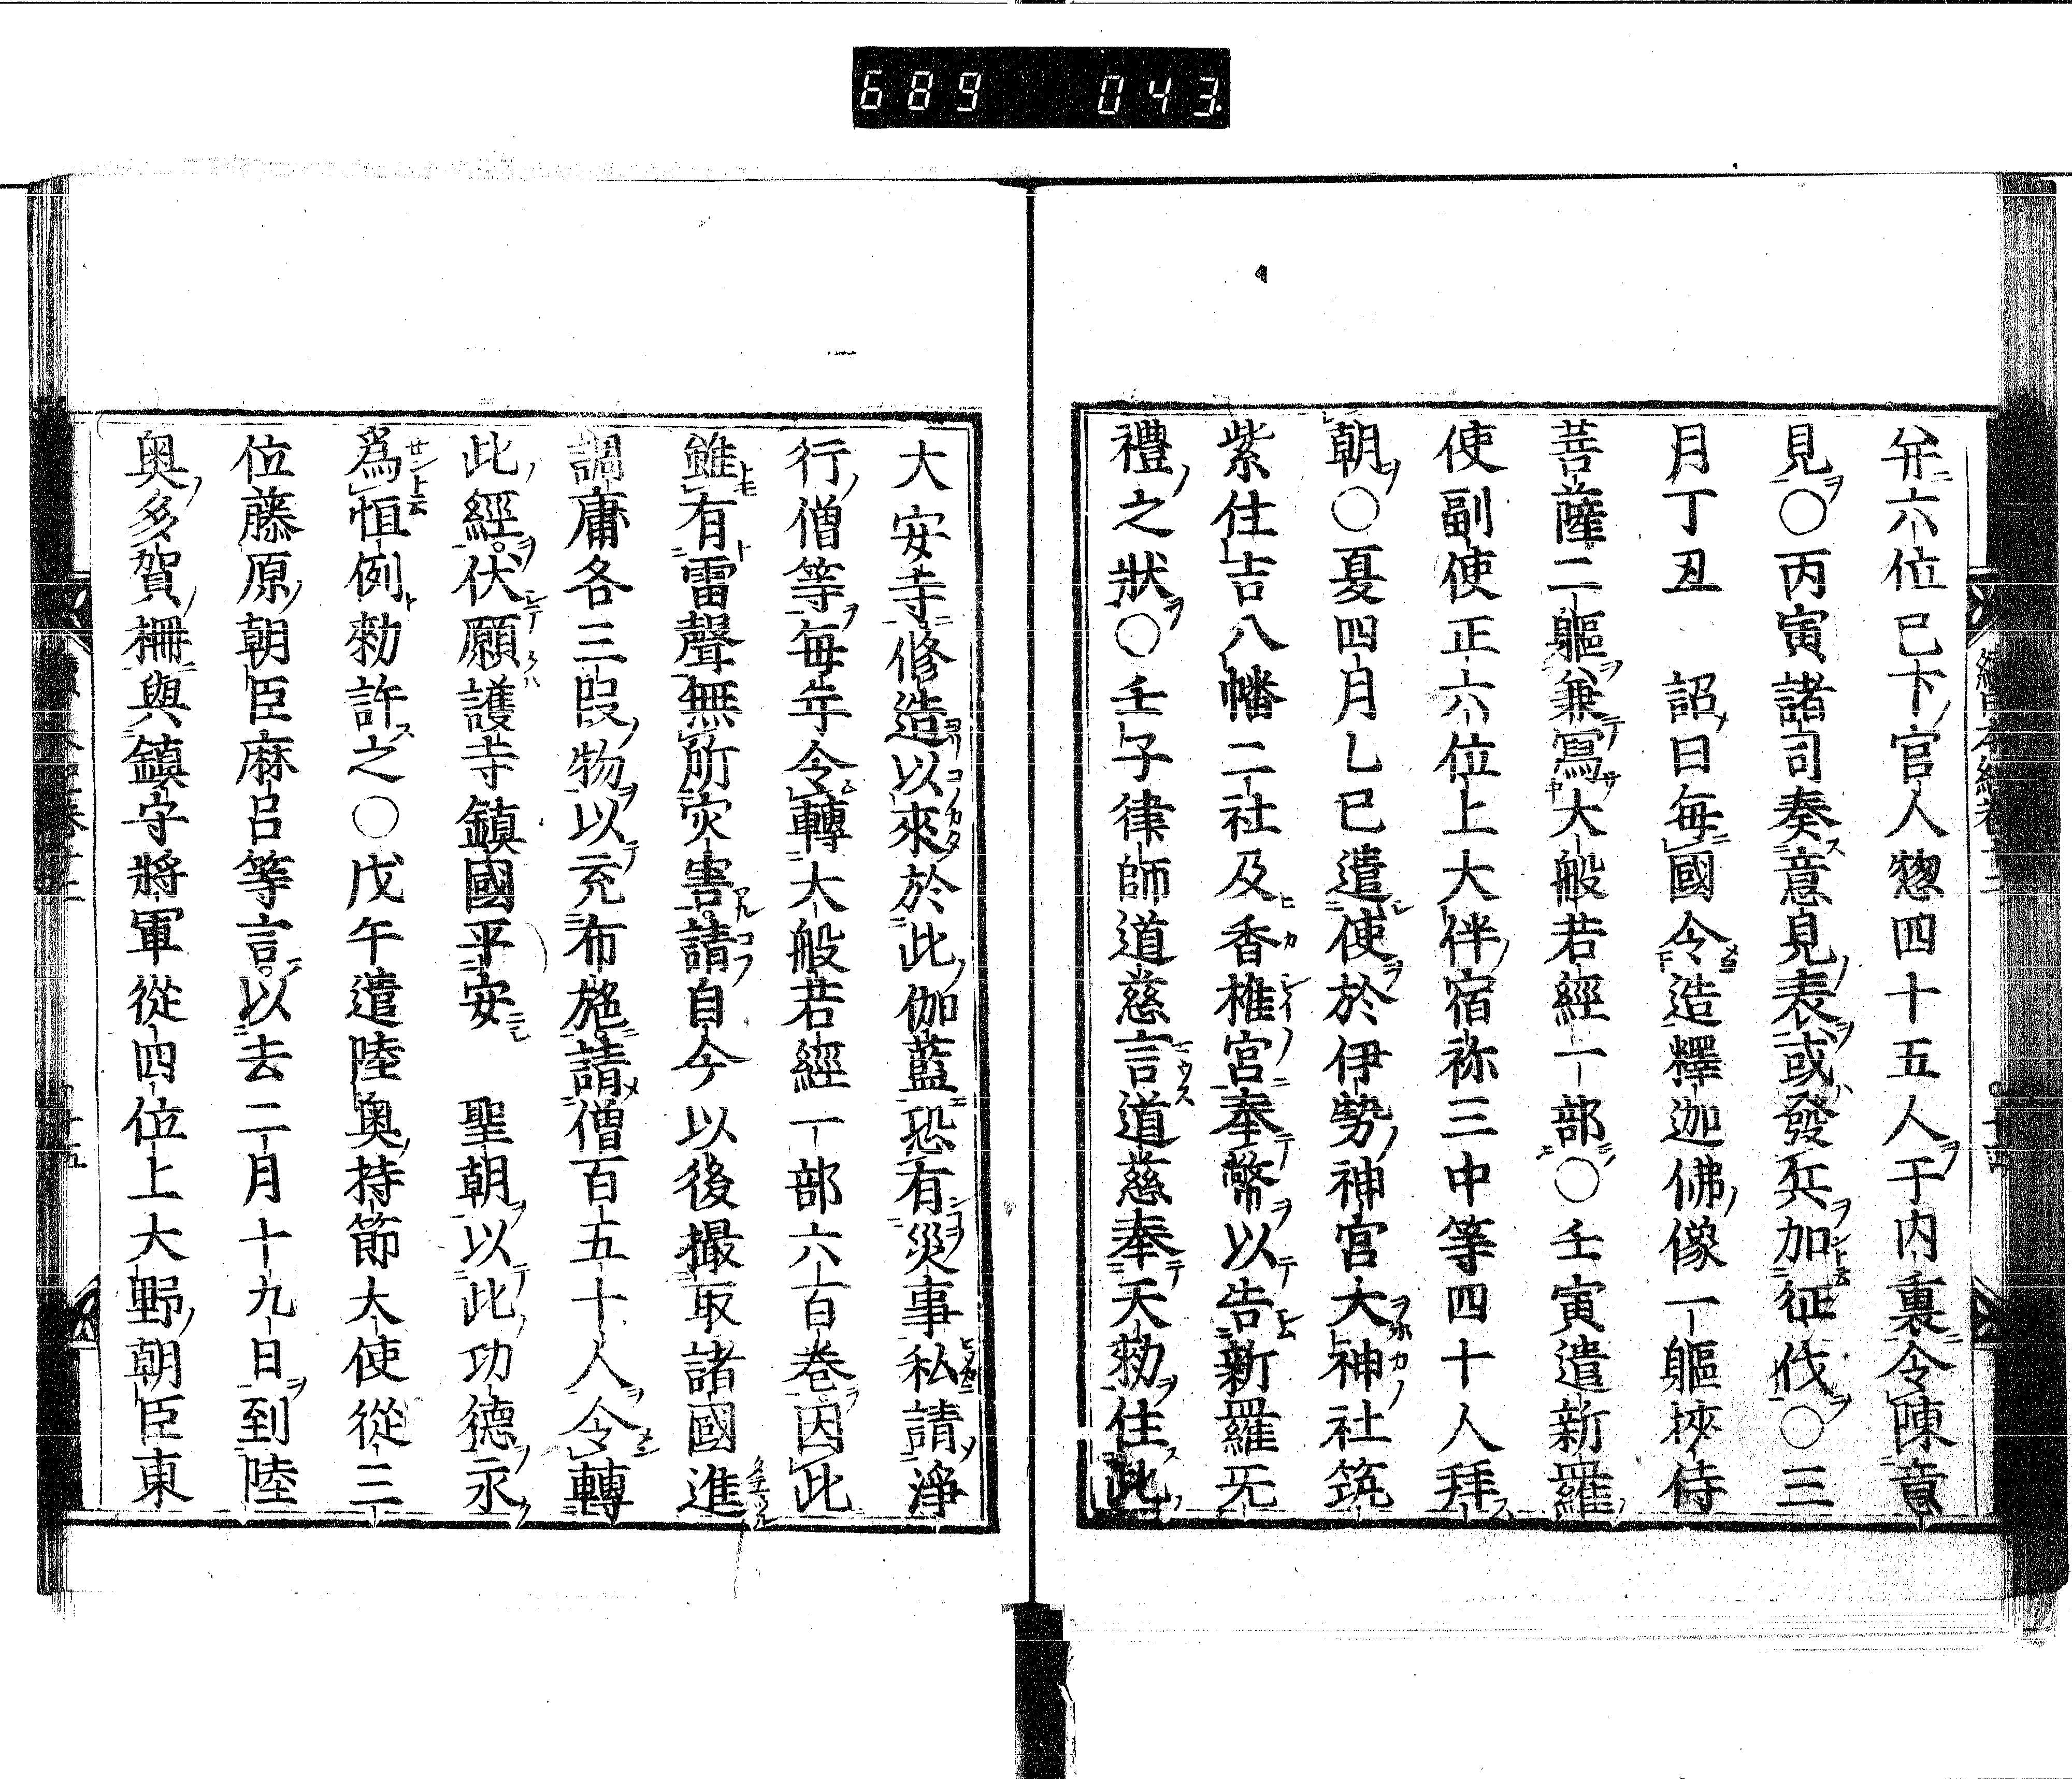 689 043
弁六位已下官人惣四十五人于内裏令陳意
見○丙寅諸司奏意見表或發兵加征伐○三
月丁丑 詔曰毎國令造釋迦佛像一軀挾侍
菩薩二軀兼寫大般若經一部○壬寅遣新羅
使副使正六位上大伴宿祢三中等四十人拜
朝○夏四月乙巳遣使於伊勢神宮大神社筑
紫住吉八幡二社及香椎宮奉幣以告新羅无
禮之狀○壬子律師道慈言道慈奉天勅住此
大安寺修造以來於此伽藍恐有災事私請淨
行僧等毎年令轉大般若經一部六百卷因此
雖有雷聲無所灾害請自今以後撮取諸國進
調庸各三段物以充布施請僧百五十人令轉
此經伏願護寺鎮國平安 聖朝以此功德永
爲恒例勅許之○戊午遣陸奥持節大使從三
位藤原朝臣麻呂等言以去二月十九日到陸
奥多賀柵與鎮守將軍從四位上大野朝臣東